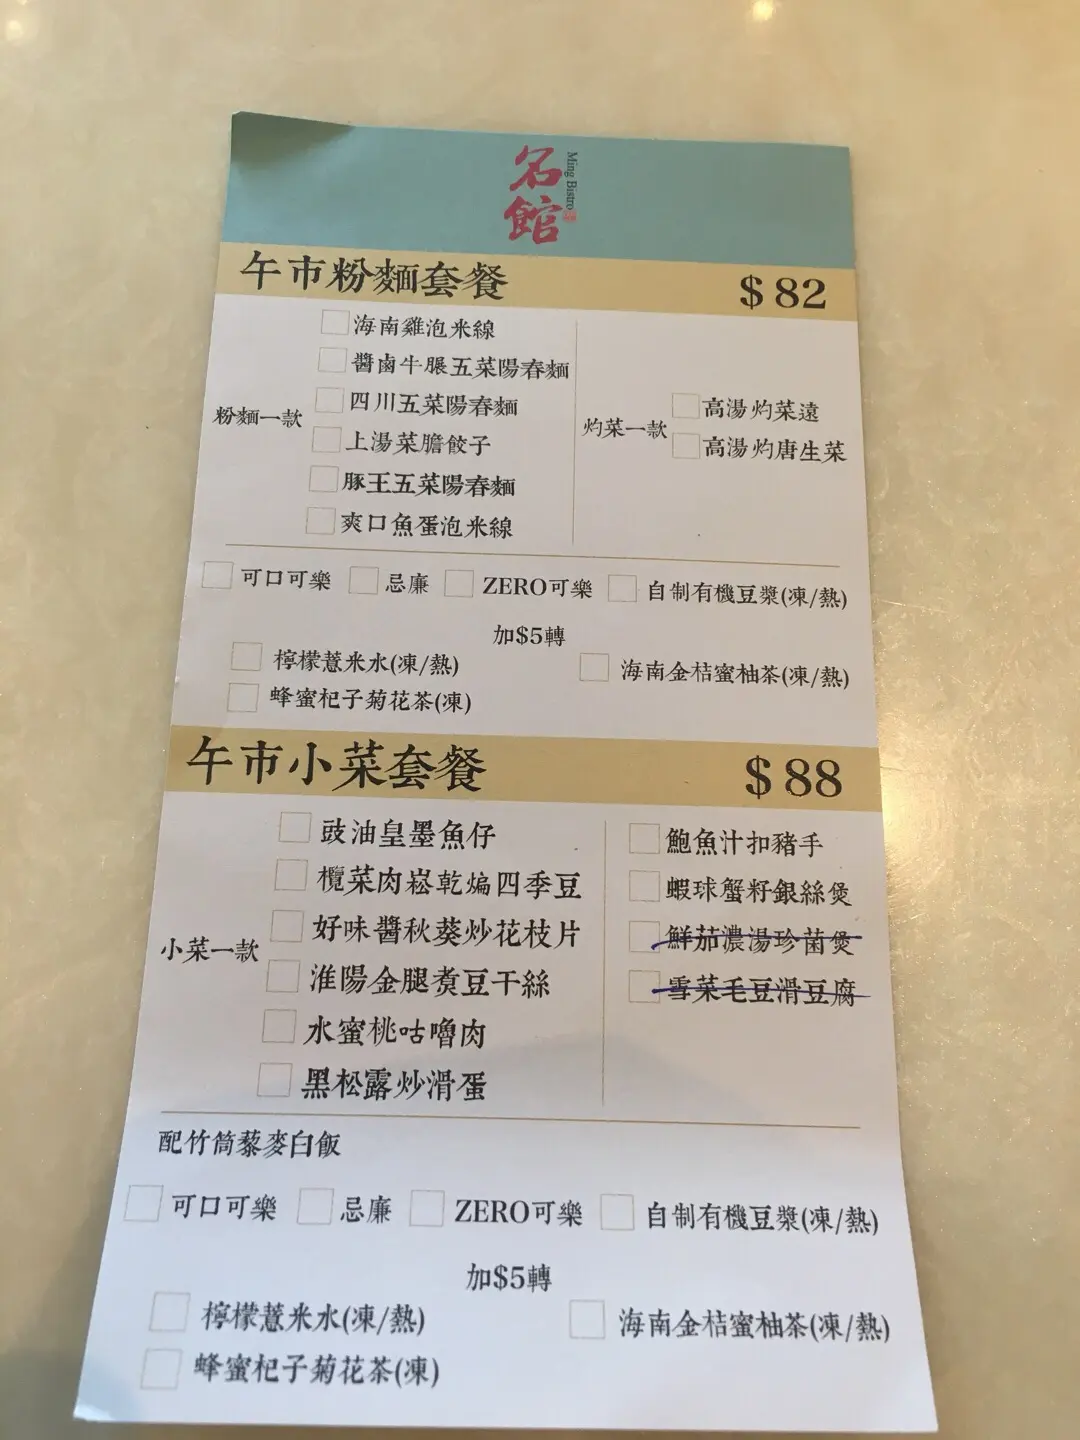 名館
Ming Bistro
午市粉麵套餐 $82
粉麵一款
海南雞泡米線
醬鹵牛𦟌五菜陽春麵
四川五菜陽春麵
上湯菜膽餃子
豚王五菜陽春麵
爽口魚蛋泡米線
灼菜一款
高湯灼菜遠
高湯灼唐生菜
可口可樂 忌廉 ZERO可樂 自制有機豆漿(凍/熱)
加$5轉
檸檬薏米水(凍/熱) 海南金桔蜜柚茶(凍/熱)
蜂蜜杞子菊花茶(凍)
午市小菜套餐 $88
小菜一款
豉油皇墨魚仔
欖菜肉崧乾煸四季豆
好味醬秋葵炒花枝片
淮陽金腿煮豆干絲
水蜜桃咕嚕肉
黑松露炒滑蛋
鮑魚汁扣豬手
蝦球蟹籽銀絲煲
鮮茄濃湯珍菌煲
雪菜毛豆滑豆腐
配竹筒藜麥白飯
可口可樂 忌廉 ZERO可樂 自制有機豆漿(凍/熱)
加$5轉
檸檬薏米水(凍/熱) 海南金桔蜜柚茶(凍/熱)
蜂蜜杞子菊花茶(凍)